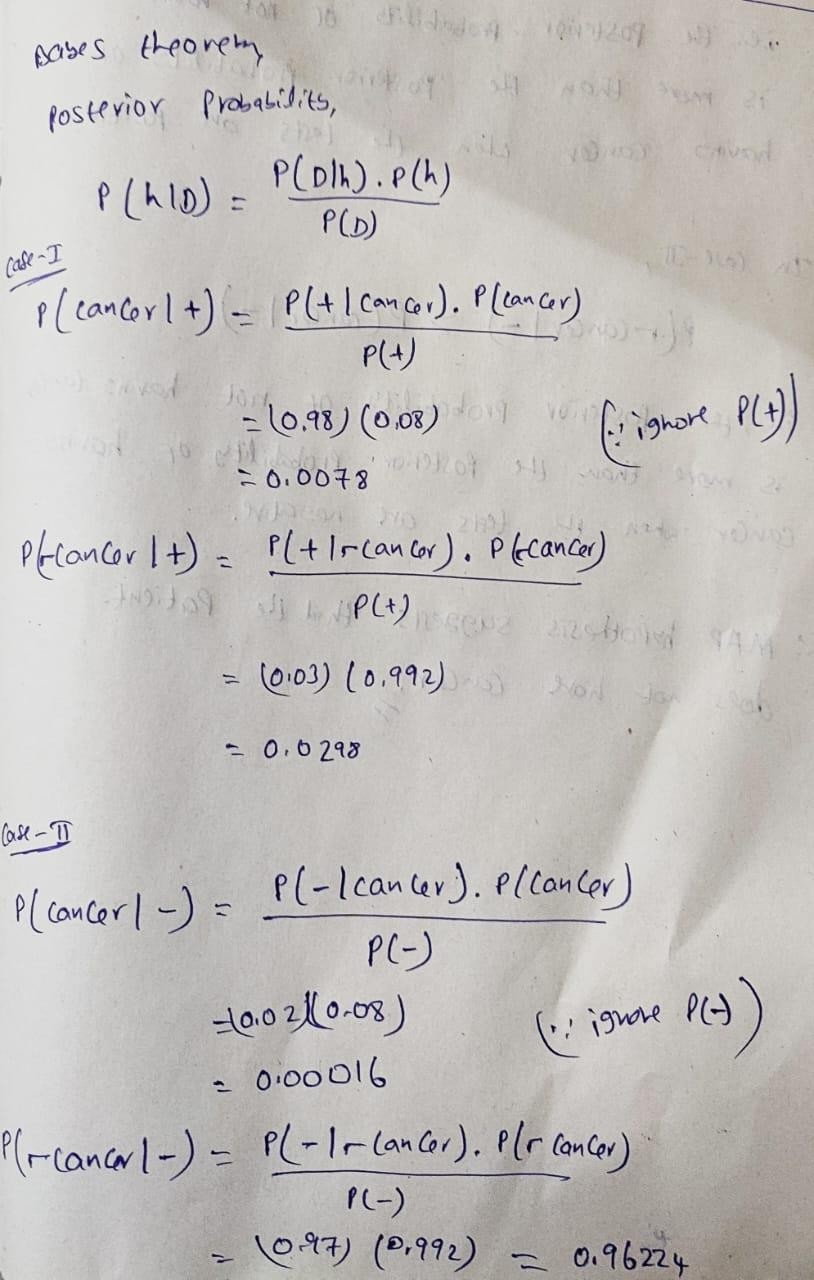 Bayes theorem,
Posterior Probability,
P(h|D) = P(D|h).P(h)
P(D)
Case-I
P(cancer|+) = P(+|cancer). P(cancer)
P(+)
= (0.98) (0.08) (∵ ignore P(+))
= 0.0078
P(¬cancer|+) = P(+|¬cancer). P(¬cancer)
P(+)
= (0.03) (0.992)
= 0.0298
Case-II
P(cancer|-) = P(-|cancer). P(cancer)
P(-)
= (0.02)(0.08) (∵ ignore P(-))
= 0.00016
P(¬cancer|-) = P(-|¬cancer). P(¬cancer)
P(-)
= (0.97) (0.992) = 0.96224